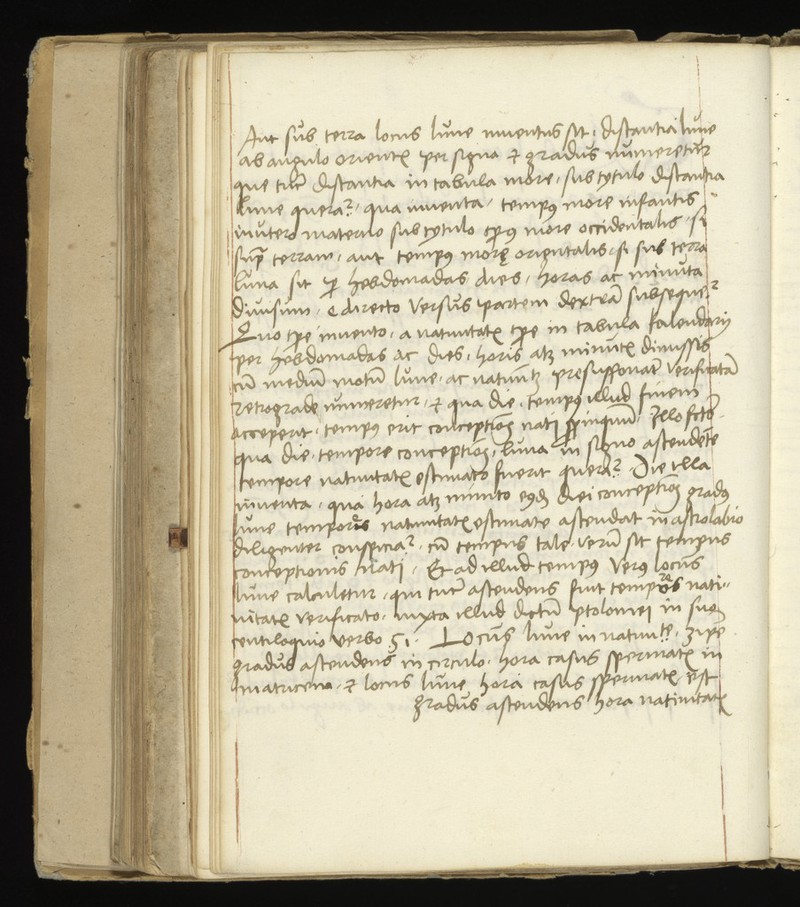 Aut sub terra locus lune inventus sit, distantia lune
ab angulo orient⁊ per signa & gradus numeretur
que tūc distantia in tabula more, sub tytulo distantia
lune querat̃, qua inventa, tempꝰ more infantis
in utero materno sub tytulo tp̄us more occidentalis, si
sup̄ terram, aut tempꝰ more orientalis, si sub terra
luna sit p̄ hebdomadas dies, horas ac minuta
divisum, e directo versus partem dextrā subsequet̃
Quo tp̄e invento, a nativitat⁊ tp̄e in tabula kalendarij
per hebdomadas ac dies, horis atq⁊ minut⁊ dimissis
cū mediū motū lune, ac nativit⁊ presupponat verificatā
retrograde numeretur, & qua die, tempꝰ illud finem
acceperit, tempꝰ erit conception⁊ nati ꝓpinquū. Illo fcto
qua die, tempore conception⁊, luna in signo ascendēte
tempore nativitat⁊ estimato fuerit querat̃. Die illa
inventa, qua hora atq⁊ minuto eꝰd diei conception⁊ gradꝰ
lune temporis nativitat⁊ estimate ascendat in astrolabio
diligenter conspiciat̃, cū tempus tale verū sit tempus
conceptionis nati. Et ad illud tempꝰ verꝰ locus
lune calculetur, qui tūc ascendens fuit temporis nati=
vitat⁊ verificato, iuxta illud dictū ptolomei in suo
centiloquio verbo 51. Locus lune in nativitate, ꝫ ipe
gradus ascendens in circulo, hora casus spermat⁊ in
matricem, & locus lune hora casus spermat⁊ est
gradus ascendens hora nativitat⁊